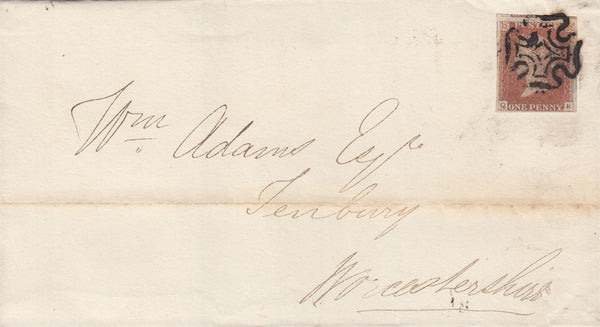 ONE PENNY
Wm Adams Esqr
Tenbury
Worcestershire